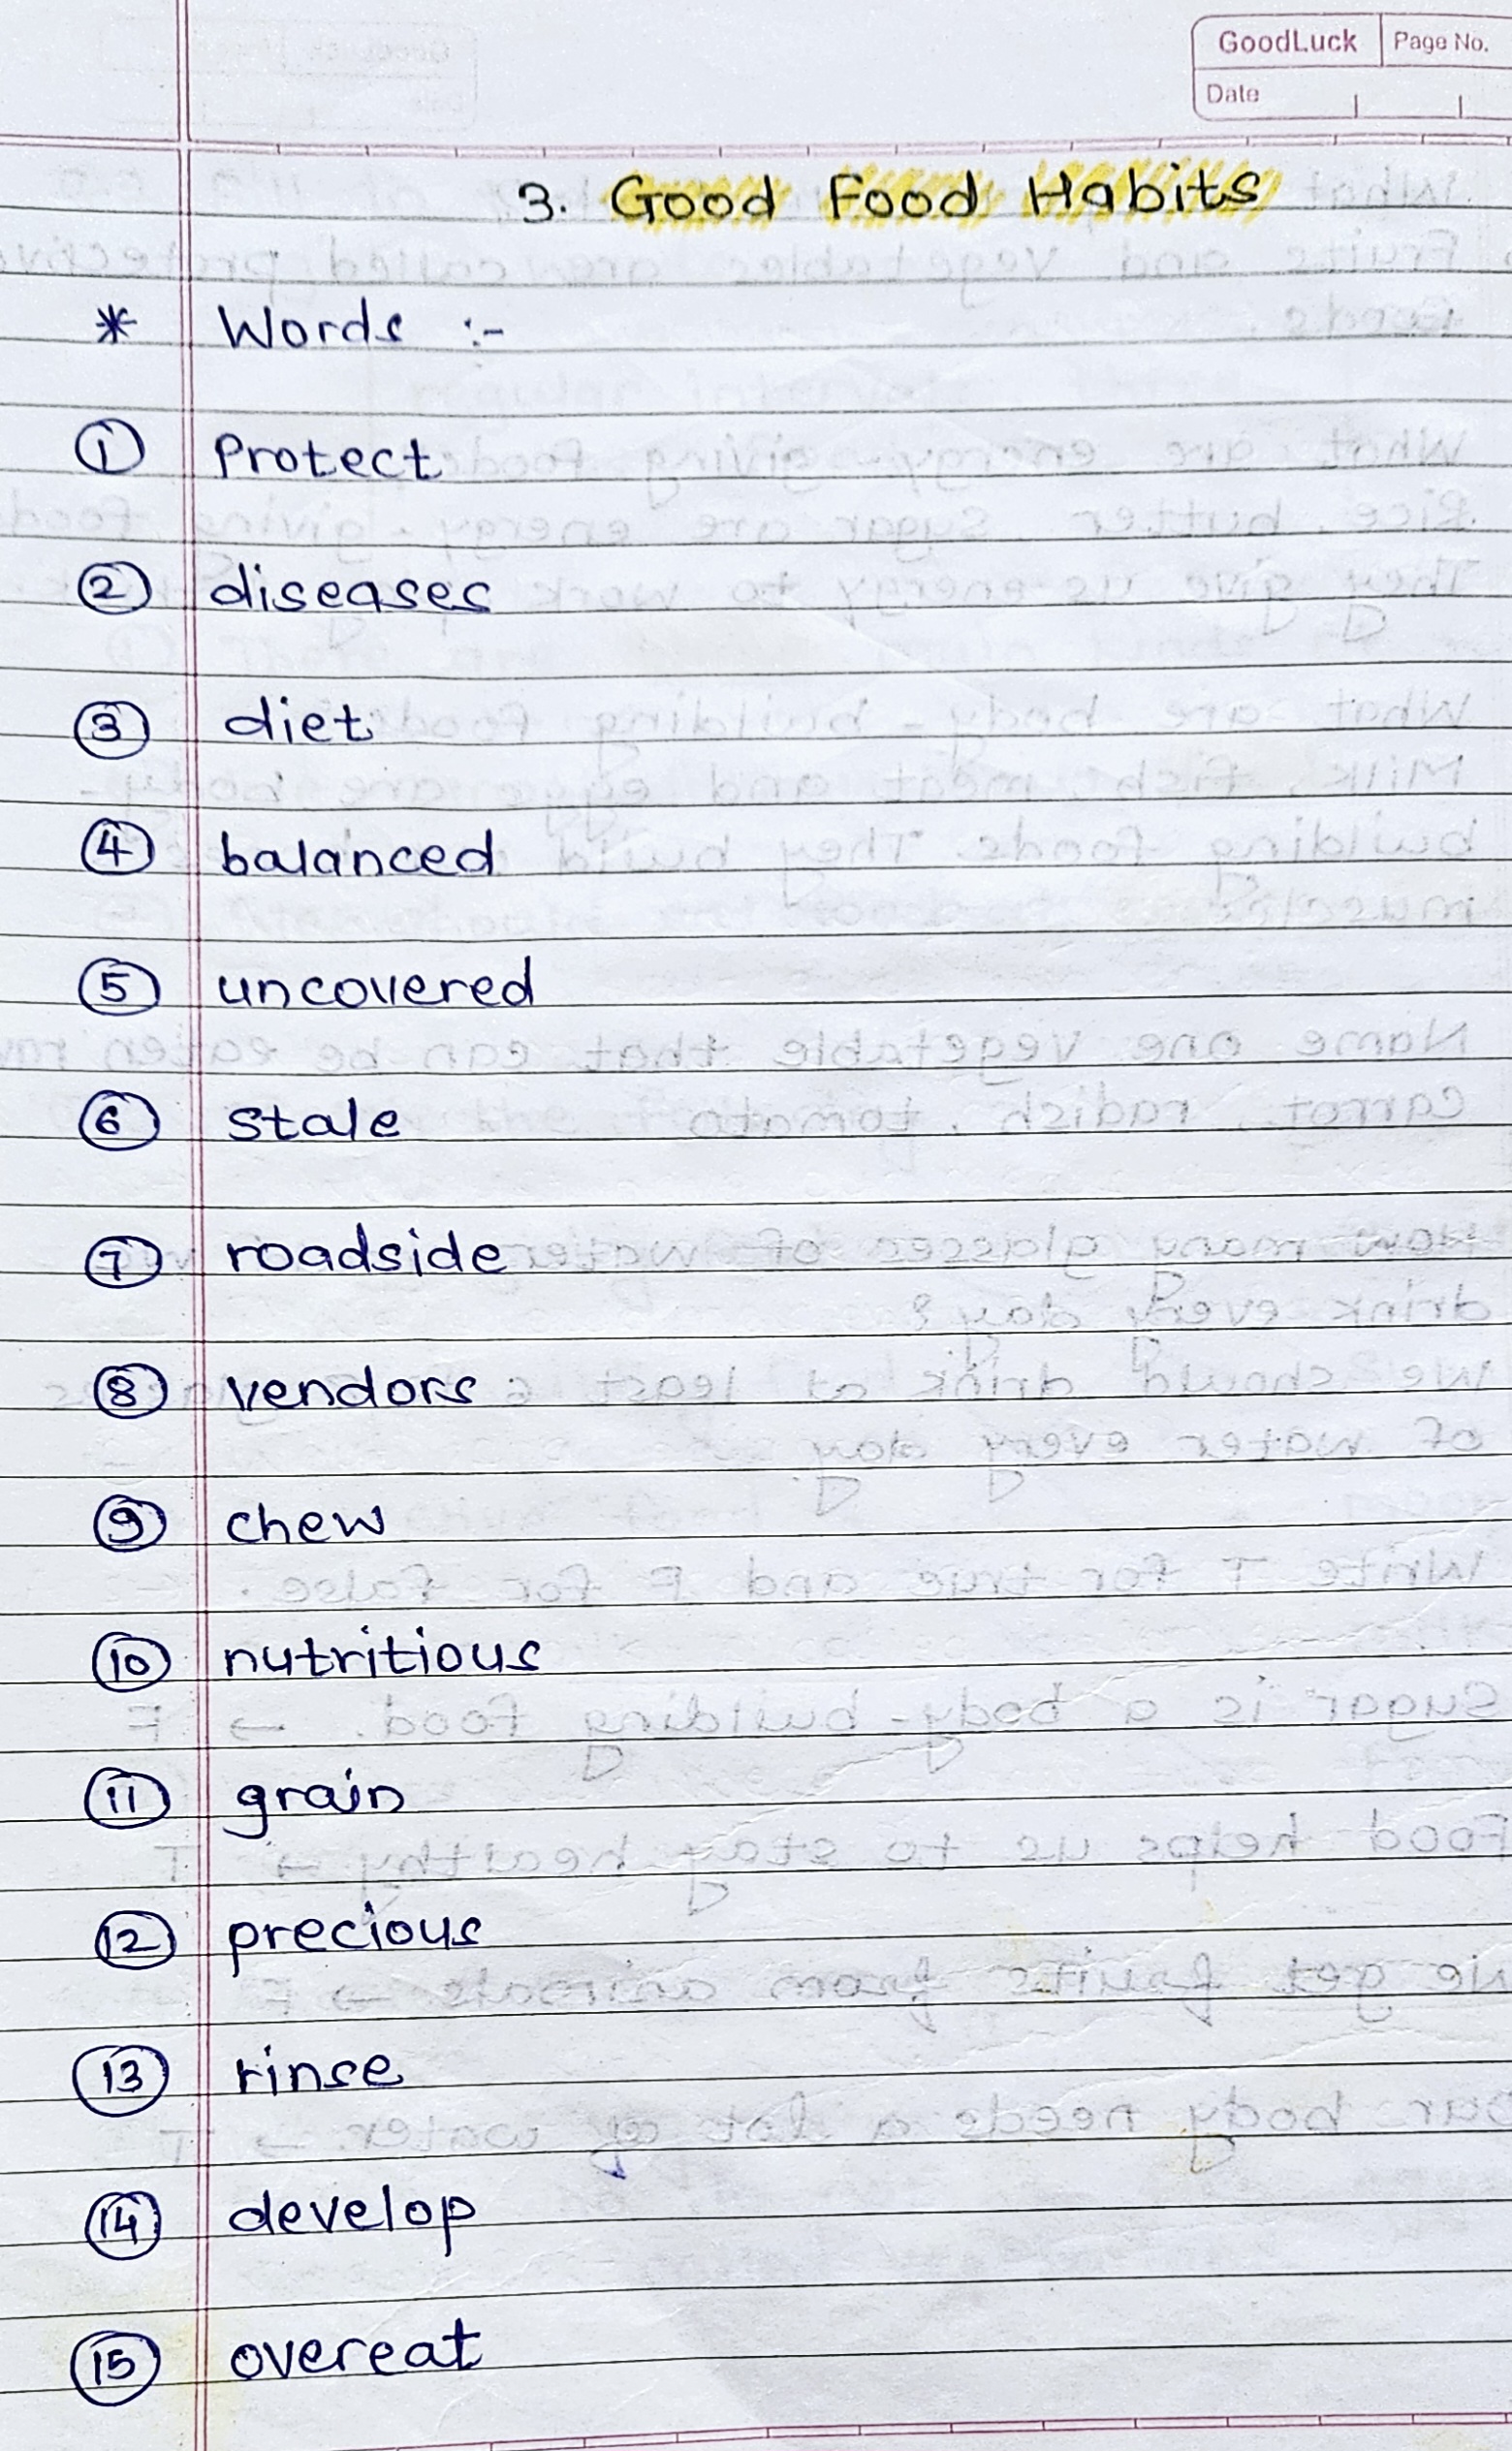 GoodLuck Page No.
Date
3. Good Food Habits
* Words :-
① Protect
② diseases
③ diet
④ balanced
⑤ uncovered
⑥ stale
⑦ roadside
⑧ vendors
⑨ chew
⑩ nutritious
⑪ grain
⑫ precious
⑬ rinse
⑭ develop
⑮ overeat